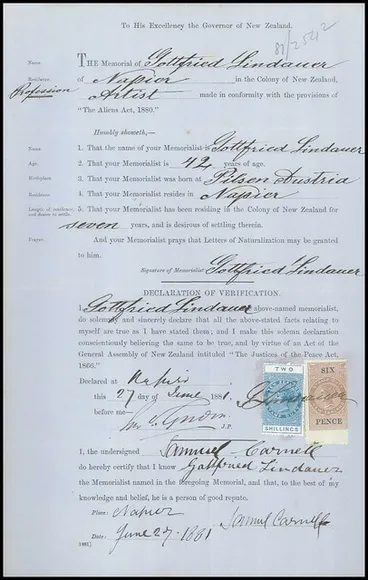 To His Excellency the Governor of New Zealand.
81/2542
Name. THE Memorial of Gottfried Lindauer
Residence. of Napier in the Colony of New Zealand,
Profession Artist made in conformity with the provisions of
"The Aliens Act, 1880."
Humbly showeth,—
Name. 1. That the name of your Memorialist is Gottfried Lindauer
Age. 2. That your Memorialist is 42 years of age.
Birthplace. 3. That your Memorialist was born at Pilsen Austria
Residence. 4. That your Memorialist resides in Napier
Length of residence and desire to settle. 5. That your Memorialist has been residing in the Colony of New Zealand for
seven years, and is desirous of settling therein.
Prayer. And your Memorialist prays that Letters of Naturalization may be granted
to him.
Signature of Memorialist Gottfried Lindauer
DECLARATION OF VERIFICATION.
I, Gottfried Lindauer above-named memorialist,
do solemnly and sincerely declare that all the above-stated facts relating to
myself are true as I have stated them; and I make this solemn declaration
conscientiously believing the same to be true, and by virtue of an Act of the
General Assembly of New Zealand intituled "The Justices of the Peace Act,
1866."
Declared at Napier
this 27 day of June 1881. Lindauer
before me— J.P.
TWO
SHILLINGS
SIX
PENCE
I, the undersigned Samuel Carnell
do hereby certify that I know Gottfried Lindauer
the Memorialist named in the foregoing Memorial, and that, to the best of my
knowledge and belief, he is a person of good repute.
Place: Napier
Samuel Carnell
Date: June 27 - 1881